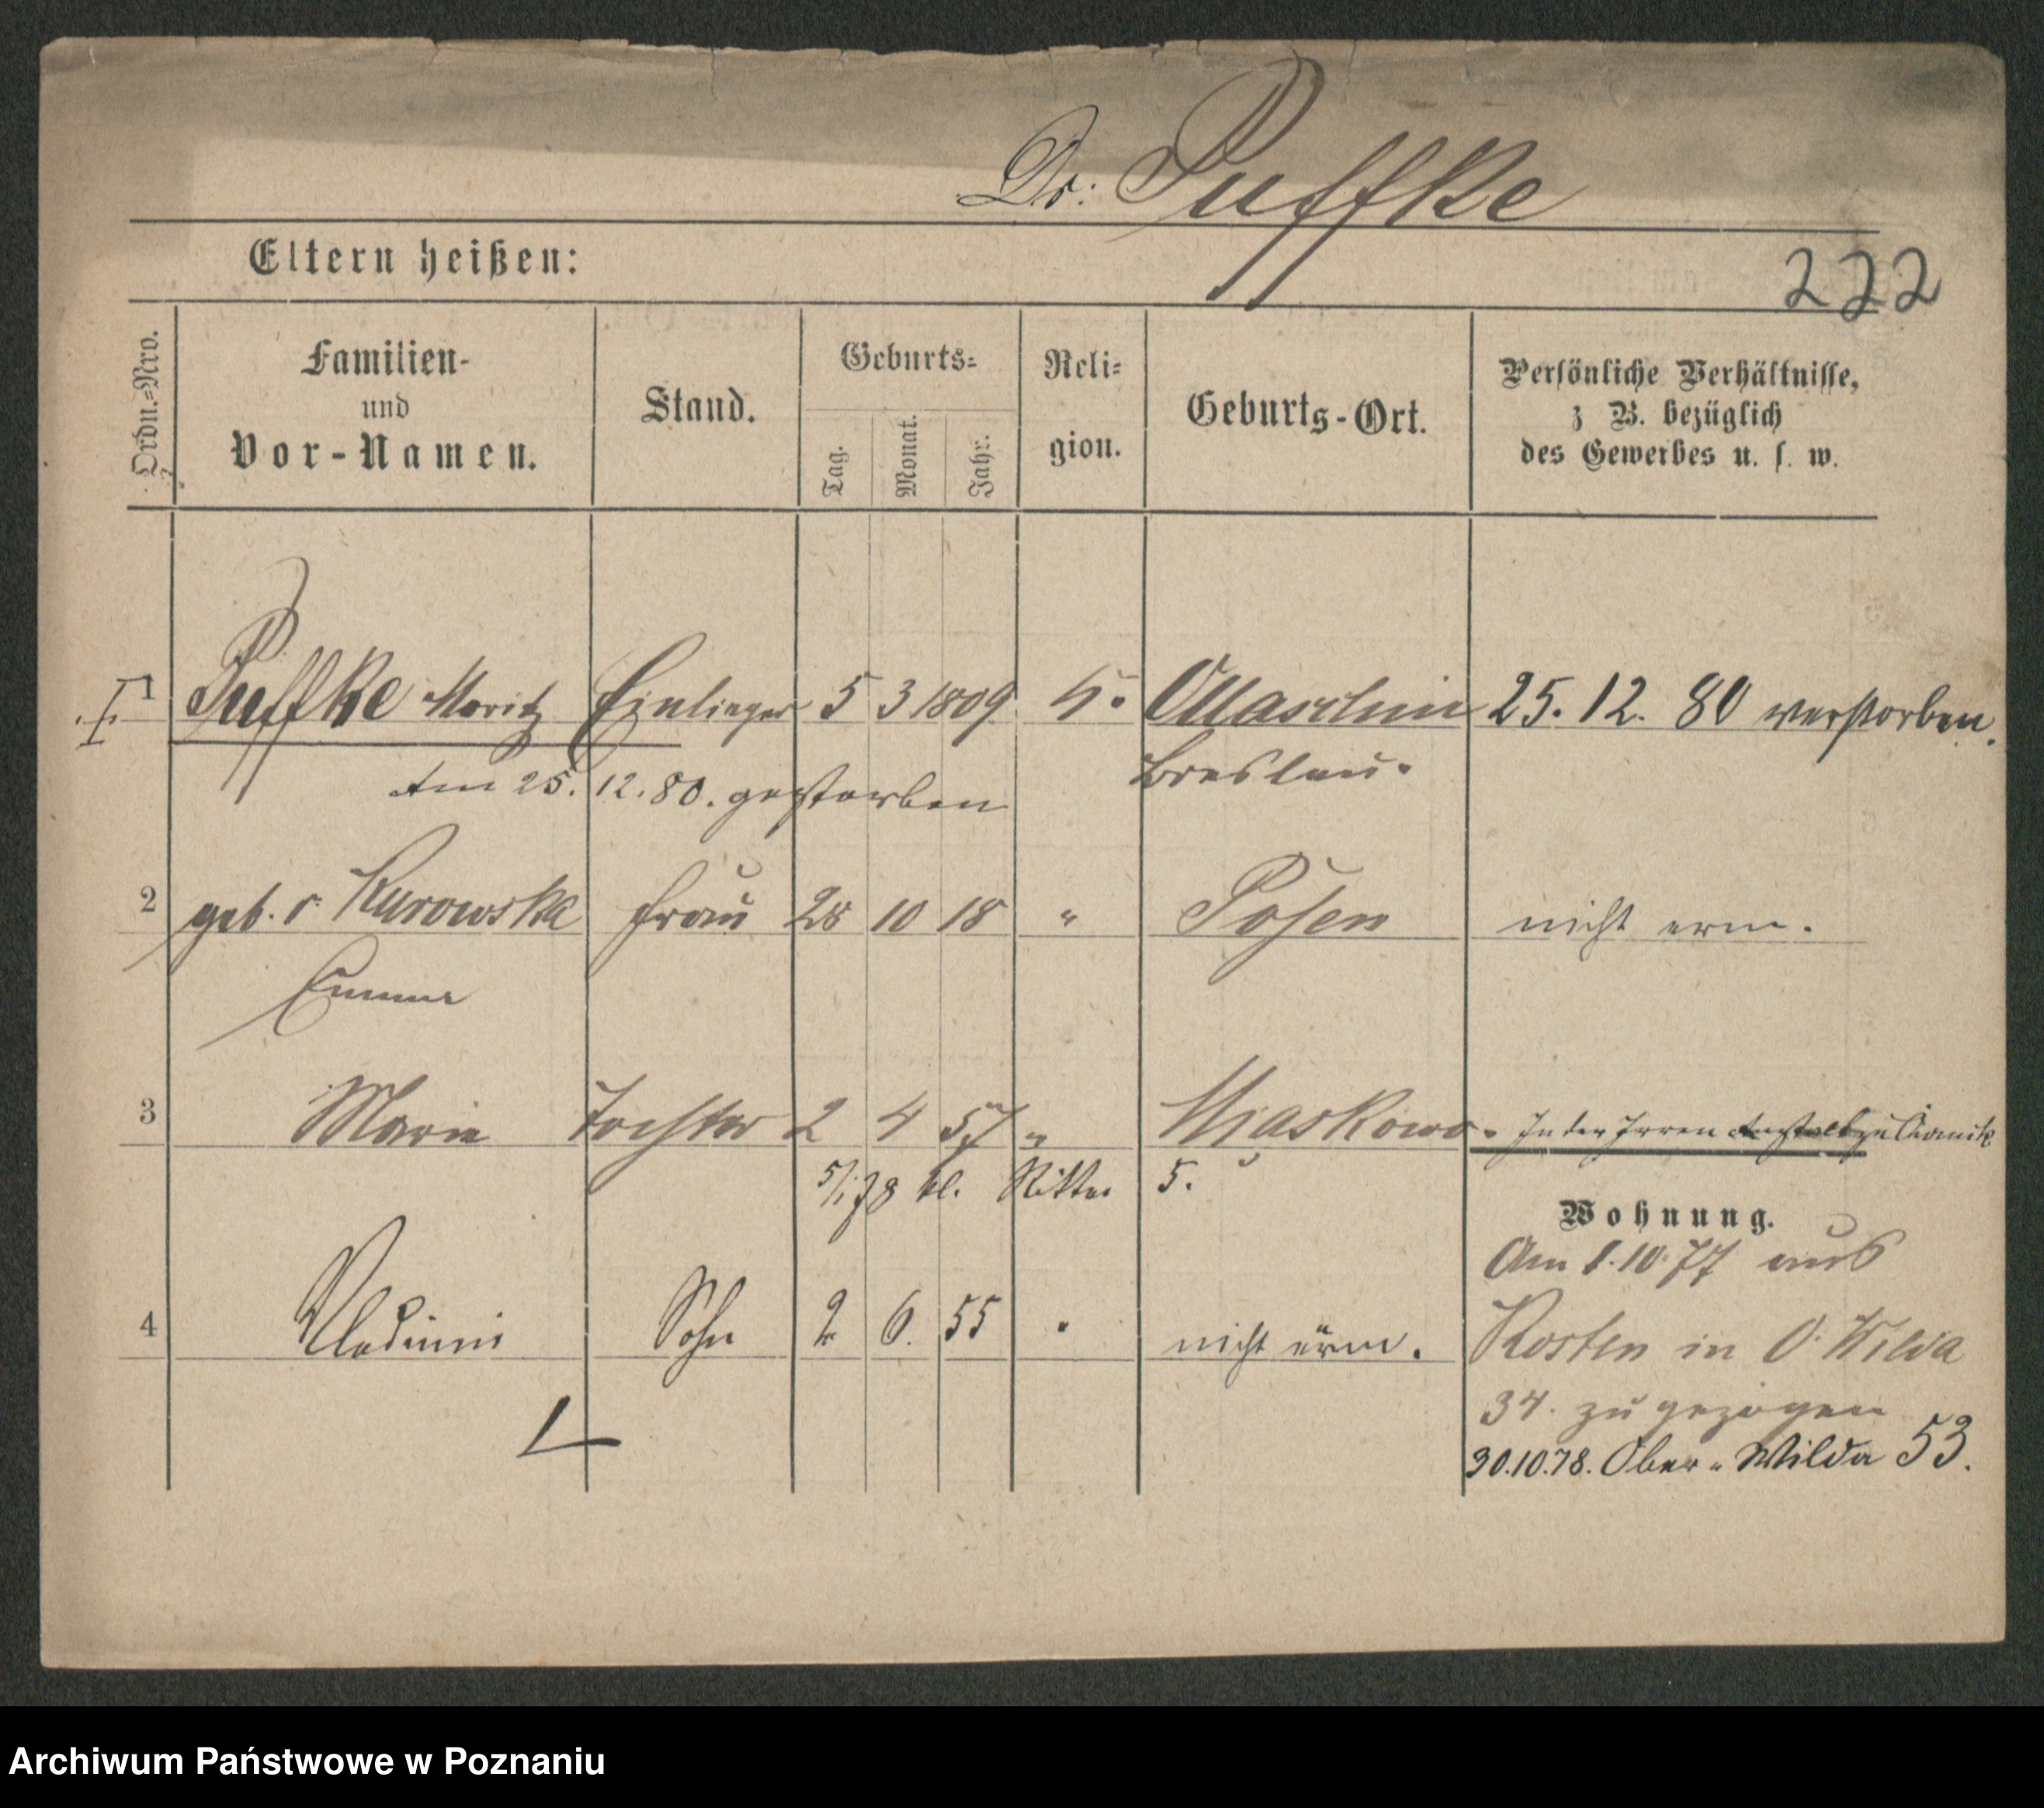 Dr. Puffke
Eltern heißen:
222
Ordn.-Nro.
Familien-
und
Vor-Namen.
Stand.
Geburts-
Tag. Monat. Jahr.
Reli-
gion.
Geburts-Ort.
Persönliche Verhältnisse,
z B. bezüglich
des Gewerbes u. s. w.
1 Puffke Moritz 5 3 1809 25. 12. 80 verstorben.
Am 25. 12. 80. gestorben Breslau.
2 geb. v. Kurowska Frau 28 10 18 " Posen nicht erm.
Emma
3 Marie Tochter 2 4 57 " Miaskowo. In der Irren Anstalt zu
kl. Ritter 5.
Wohnung.
Am 1.10.77 aus
4 Sohn 2 6. 55 " nicht erm. Kosten in O. Wilda
34. zugezogen
30.10.78. Ober-Wilda 53.
Archiwum Państwowe w Poznaniu